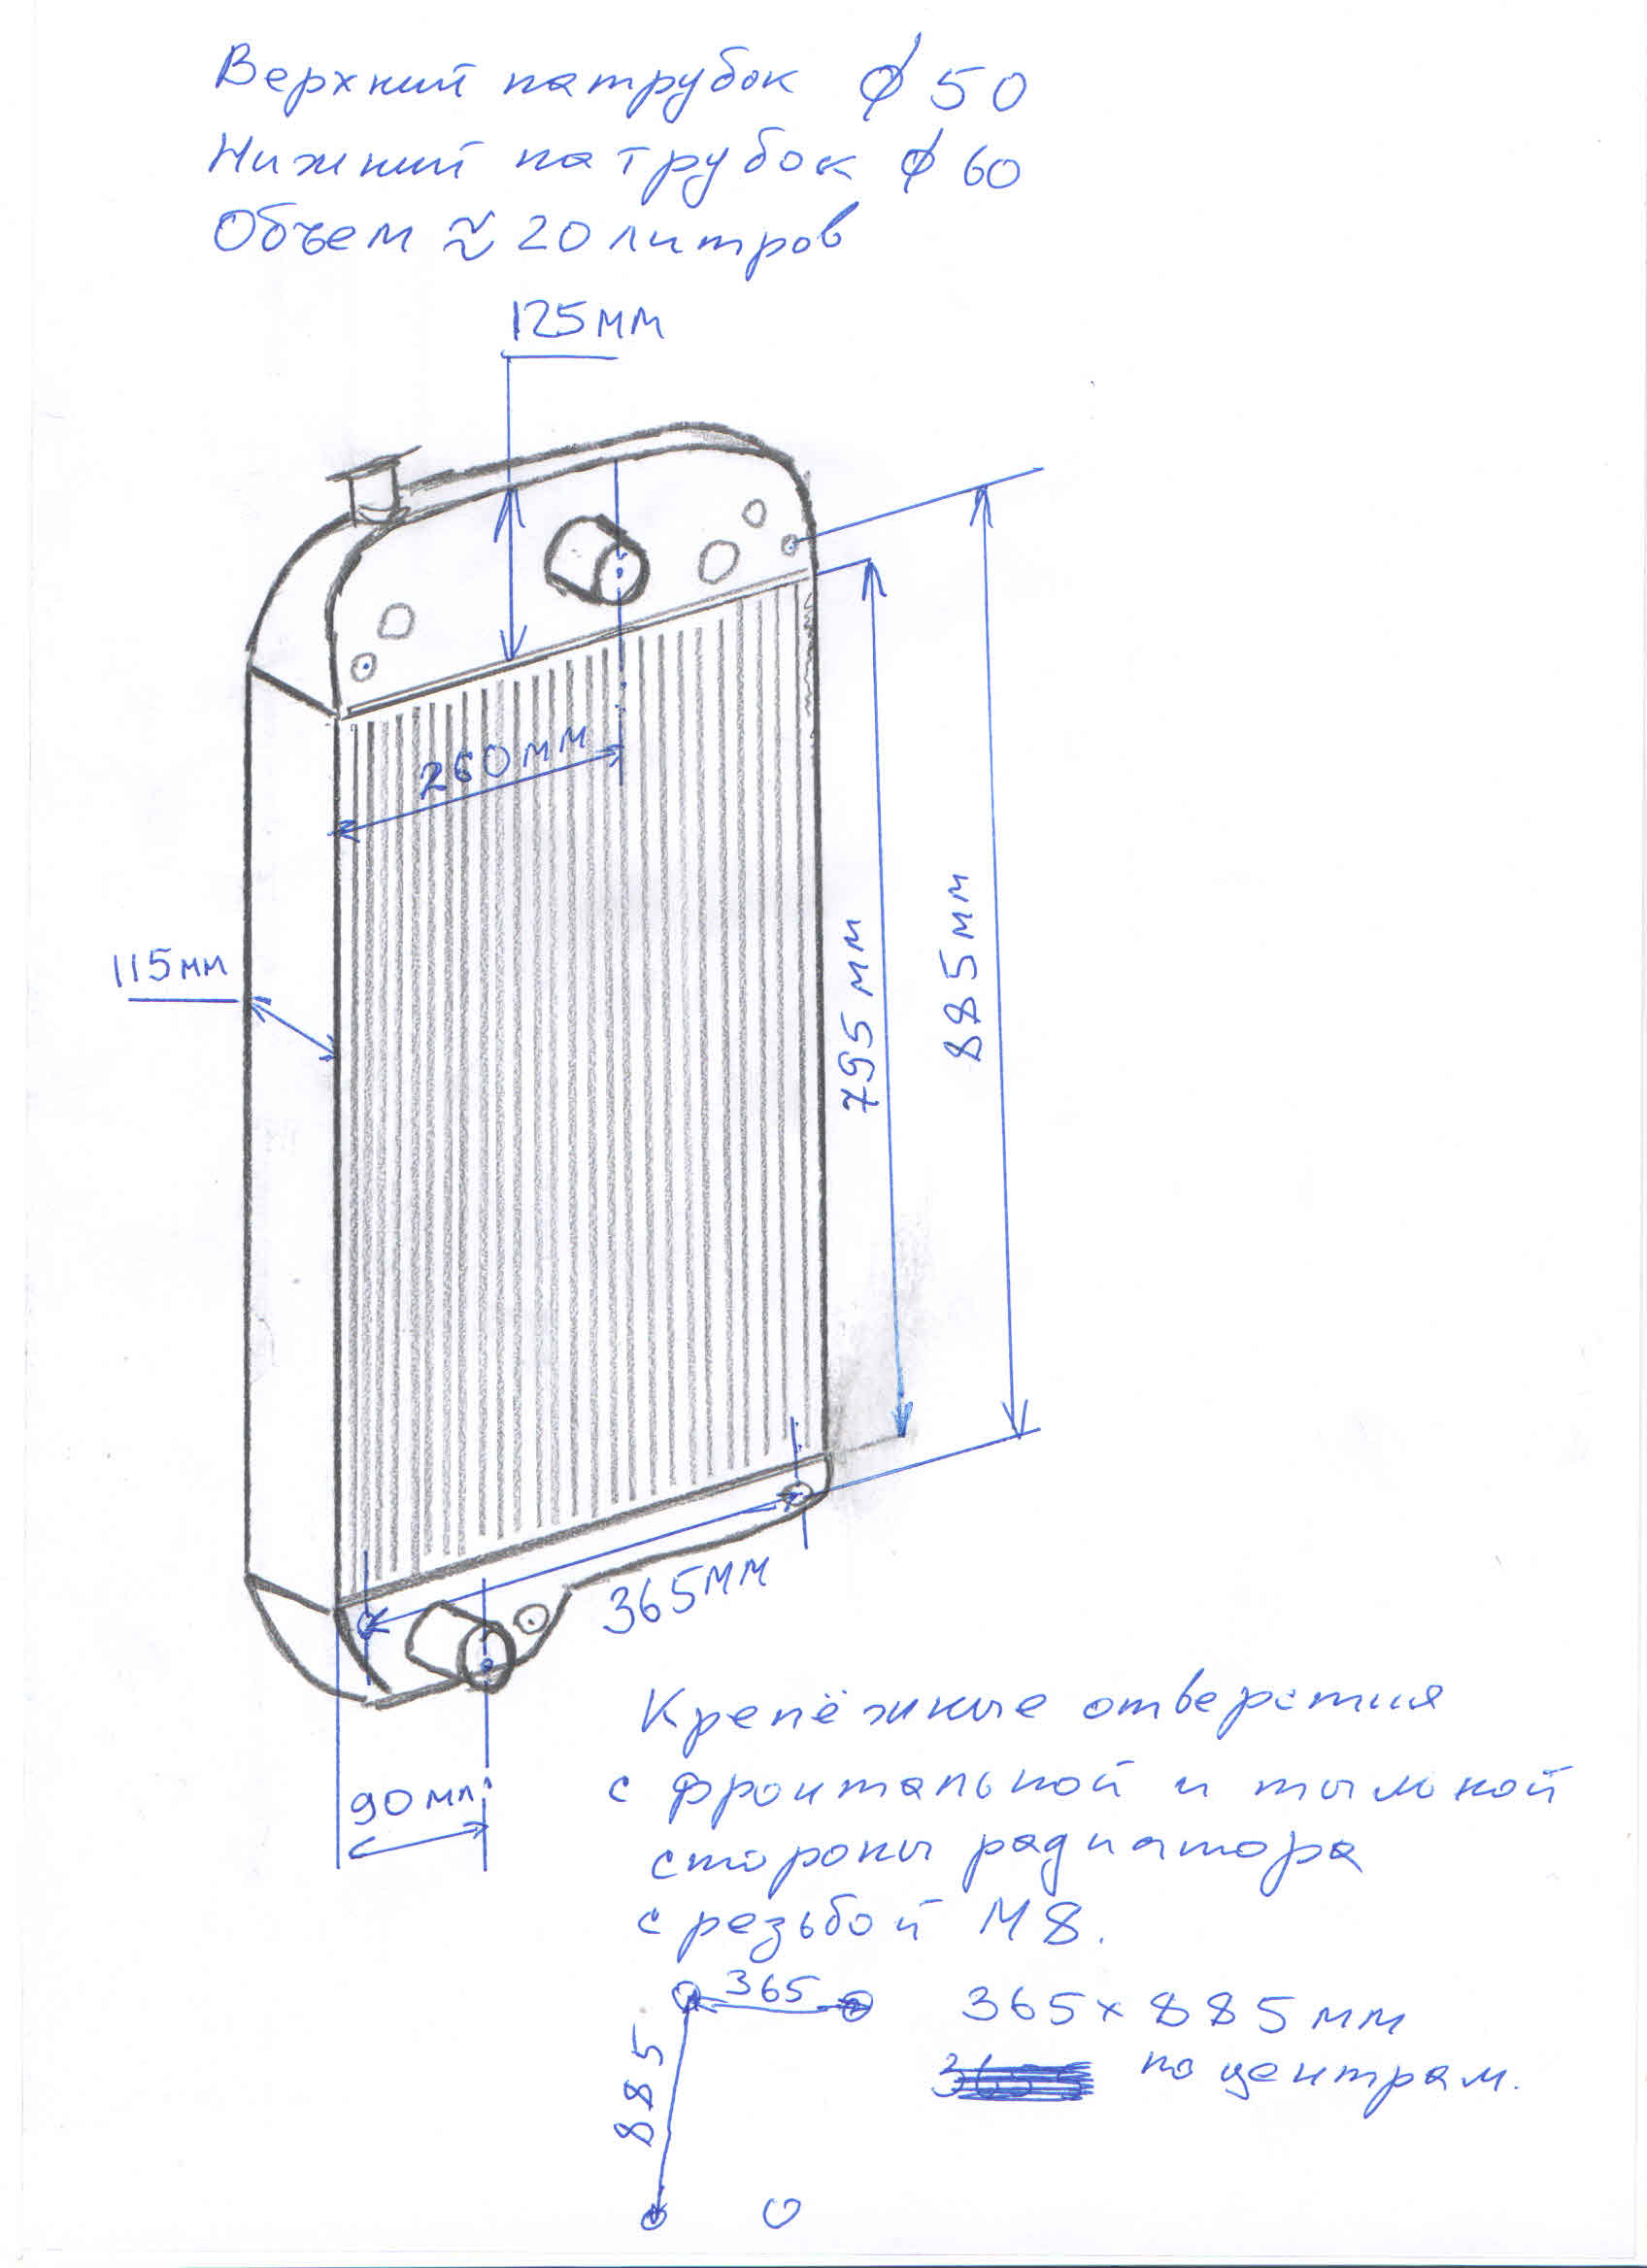 Верхний патрубок ⌀ 50
Нижний патрубок ⌀ 60
Объем ≈ 20 литров
125мм
260мм
115мм
795 мм
885мм
365мм
90 мм
Крепёжные отверстия
с фронтальной и тыльной
стороны радиатора
с резьбой М8.
365
365 × 885 мм
по центрам.
885